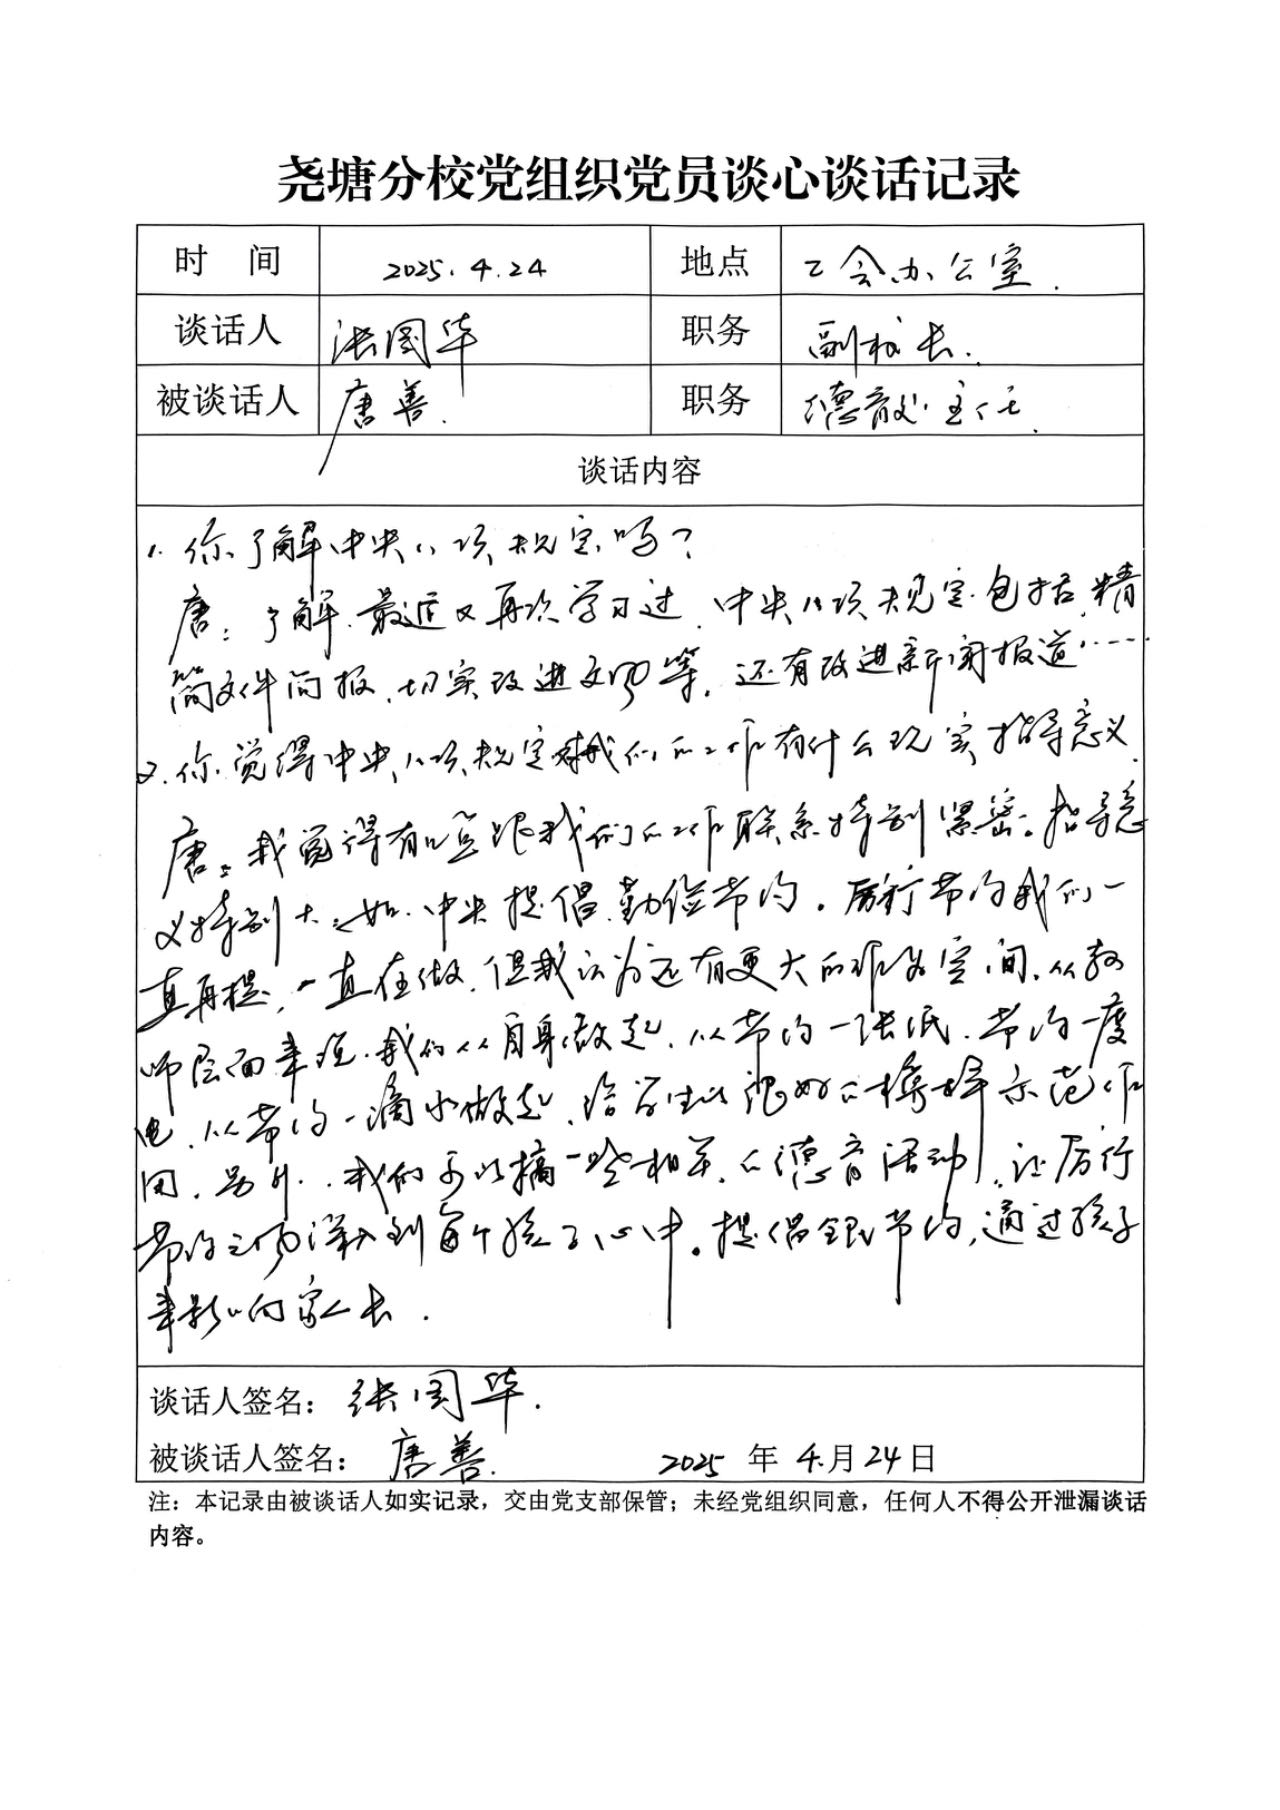 尧塘分校党组织党员谈心谈话记录
时 间 2025.4.24 地点 工会办公室.
谈话人 张国华 职务 副校长.
被谈话人 唐善. 职务 德育处主任.
谈话内容
1. 你了解中央八项规定吗?
唐: 了解.最近又再次学习过,中央八项规定包括,精
简文件简报,切实改进文风等,还有改进新闻报道……
2. 你觉得中央八项规定对我们的工作有什么现实指导意义.
唐: 我觉得有些跟我们的工作联系特别紧密。指导意
义特别大.如中央提倡勤俭节约。厉行节约我们一
直再提,一直在做.但我认为还有更大的 空间,从教
师层面来说.我们从自身做起,从节约一张纸.节约一度
电,从节约一滴水做起,给学生以很好的榜样示范作
用.另外.我们可以搞一些相关的德育活动,让厉行
节约之风深入到每个孩子心中。提倡全民节约,通过孩子
来影响家长.
谈话人签名: 张国华.
被谈话人签名: 唐善. 2025 年 4.月 24 日
注:本记录由被谈话人如实记录,交由党支部保管;未经党组织同意,任何人不得公开泄漏谈话
内容。